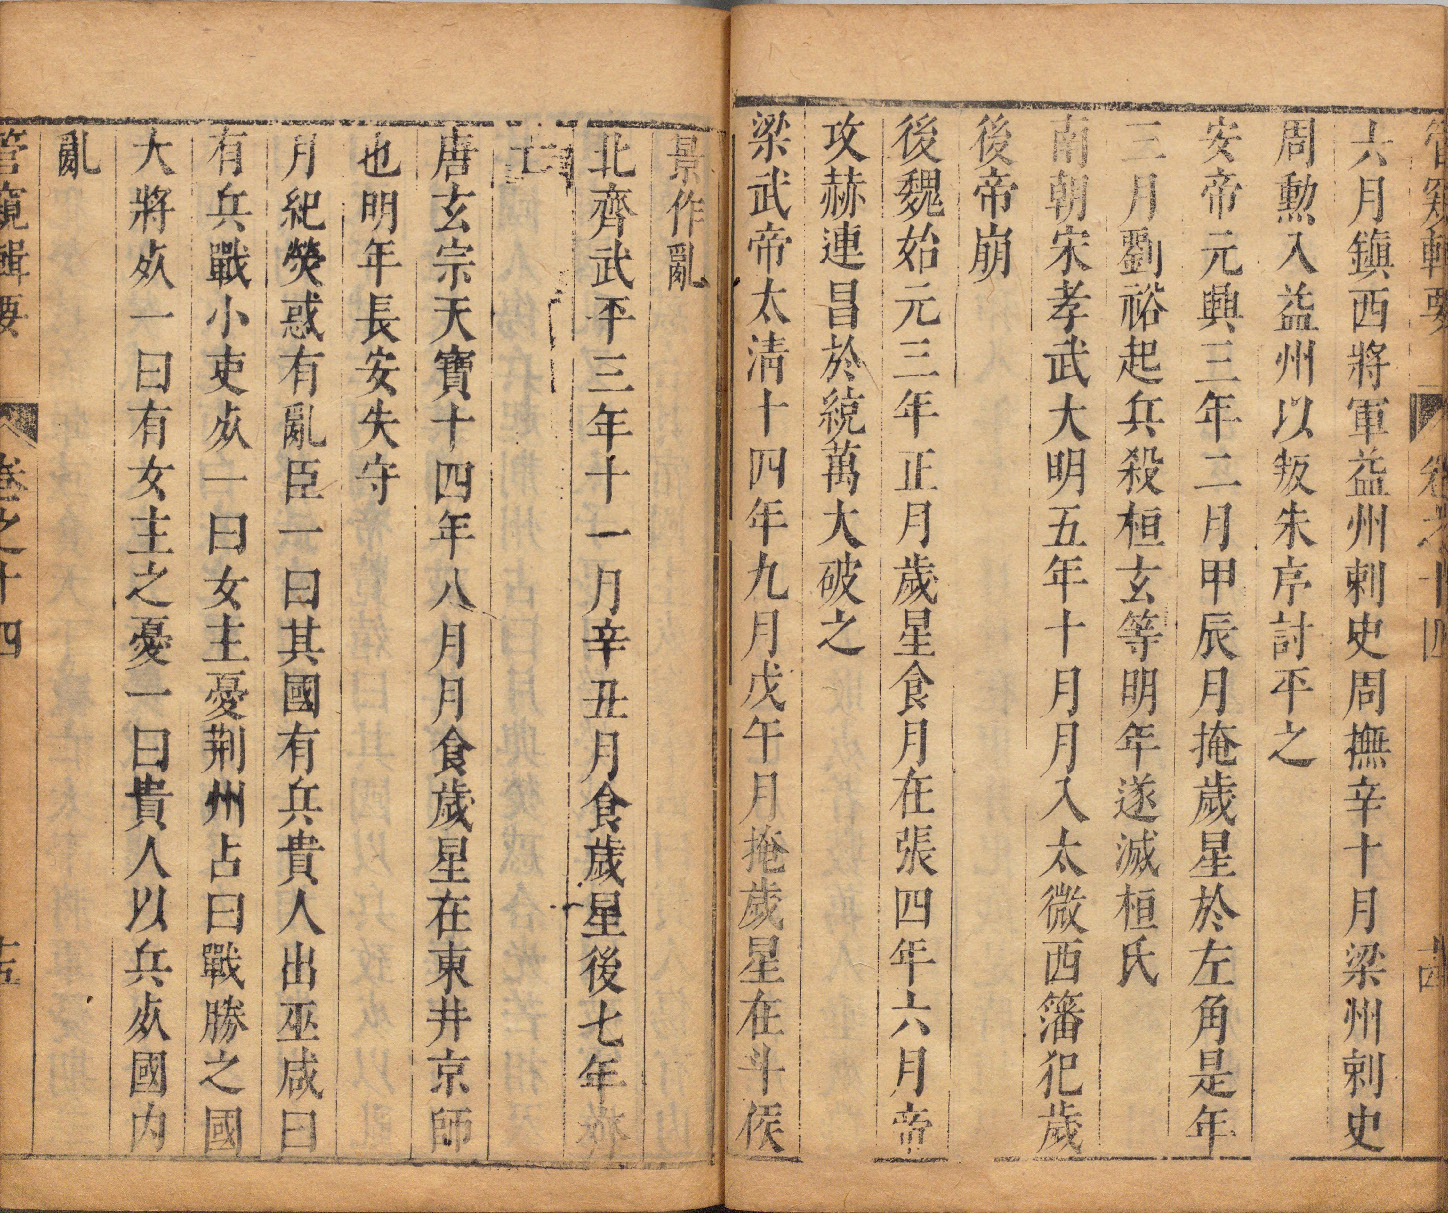 管窺輯要 卷之十四 十四
六月鎮西將軍益州刺史周撫辛十月梁州刺史
周勲入益州以叛朱序討平之
安帝元興三年二月甲辰月掩歲星於左角是年
三月劉裕起兵殺桓玄等明年遂滅桓氏
南朝宋孝武大明五年十月月入太微西籓犯歲
後帝崩
後魏始元三年正月歲星食月在張四年六月帝
攻赫連昌於統萬大破之
梁武帝太清十四年九月戊午月掩歲星在斗侯
景作亂
北齊武平三年十一月辛丑月食歲星後七年
亡
唐玄宗天寶十四年八月月食歲星在東井京師
也明年長安失守
月犯熒惑有亂臣一曰其國有兵貴人出巫咸曰
有兵戰小吏𣦸一曰女主憂荆州占曰戰勝之國
大將𣦸一曰有女主之憂一曰貴人以兵𣦸國内
亂
管窺輯要 卷之十四 十五